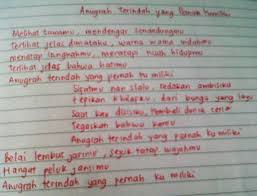 Anugrah Terindah yang Pernah Kumiliki
Melihat tawamu, mendengar senandungmu
Terlihat jelas dimataku, warna warna indahmu
menatap langkahmu, meratapi kisah hidupmu
Terlihat jelas bahwa hatimu
Anugrah terindah yang pernah ku miliki
Sifatmu nan slalu, redakan ambisiku
tepikan khilafku, dari bunga yang layu
Saat kau disisiku, kembali dunia ceria
Tegaskan bahwa kamu
Anugrah terindah yang pernah ku miliki
Belai lembut jarimu, sejuk tatap wajahmu
Hangat peluk janjimu
Anugrah terindah yang pernah ku miliki